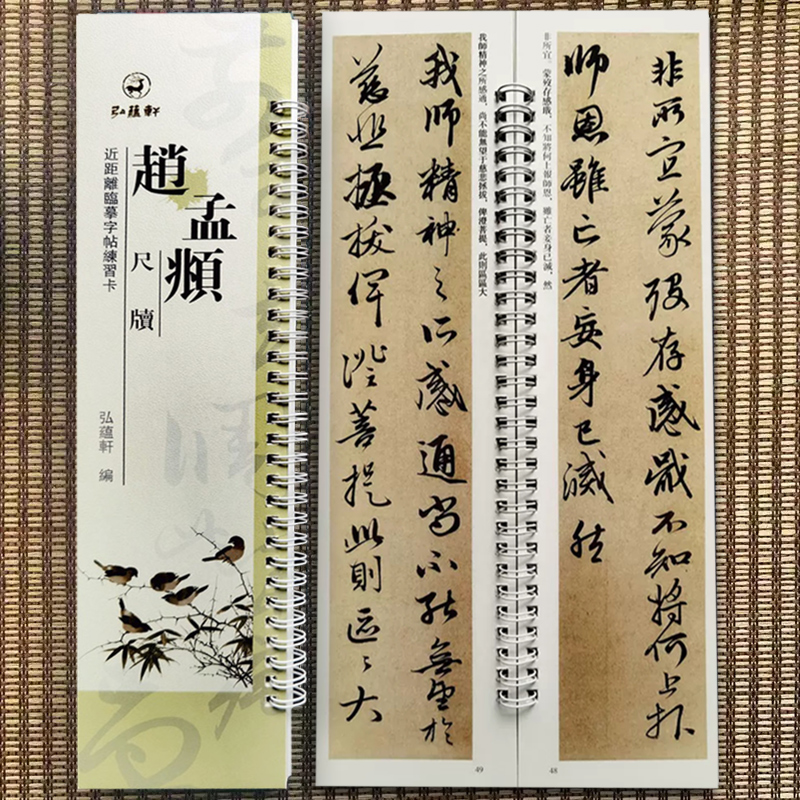 弘蘊軒
趙孟頫
尺牘
近距離臨摹字帖練習卡
弘蘊軒 編
非所宜蒙歿存感戢不知將何上報
師恩雖亡者妾身已滅然
非所宜。蒙歿存感戢,不知將何上報師恩。雖亡者妾身已滅,然
48
我師精神之所感通,尚不能無望于慈悲拯拔,俾澄菩提,此則區區大
我師精神之所感通尚不能無望於
慈悲拯拔俾澄菩提此則區々大
49